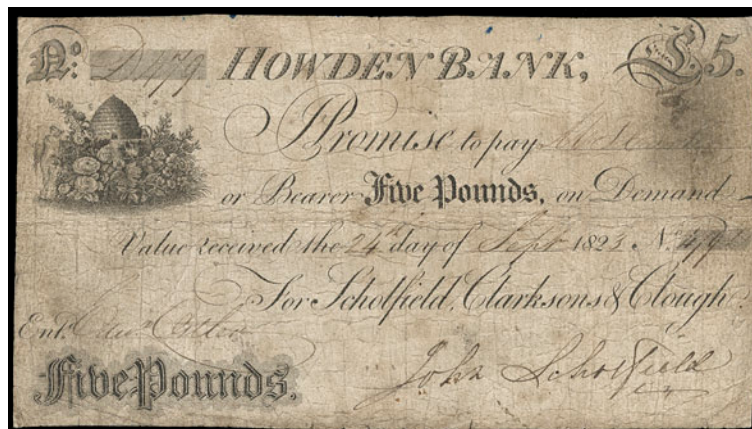 No: D479 HOWDEN BANK, £5.
I Promise to pay
or Bearer Five Pounds, on Demand
Value received the 24th day of Sept 1823 No. 479
For Scholfield, Clarksons & Clough.
Entd.
Five Pounds.
John Scholfield